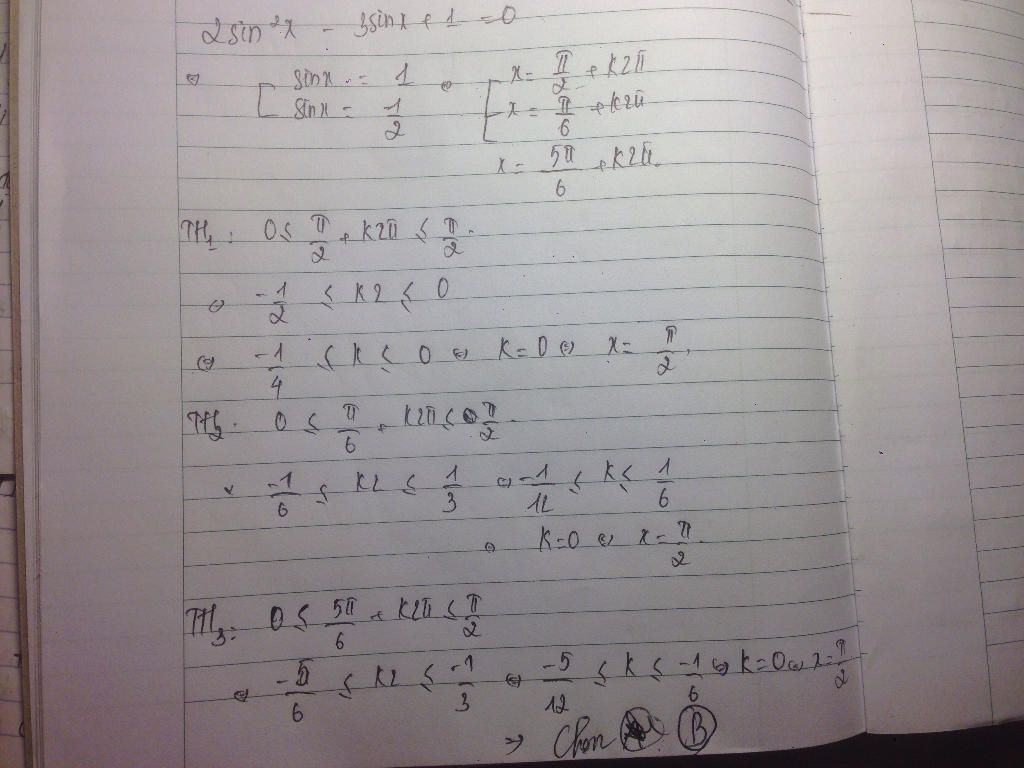 2sin²x - 3sinx + 1 = 0
⇔ [ sinx = 1 ⇔ [ x = π/2 + k2π
sinx = 1/2 x = π/6 + k2π
x = 5π/6 + k2π.
TH₁: 0 ≤ π/2 + k2π ≤ π/2.
⇔ -1/2 ≤ k2 ≤ 0
⇔ -1/4 ≤ k ≤ 0 ⇔ k=0 ⇔ x = π/2.
TH₂. 0 ≤ π/6 + k2π ≤ π/2.
-1/6 ≤ k2 ≤ 1/3 ⇔ -1/12 ≤ k ≤ 1/6
⇔ k=0 ⇔ x = π/2.
TH₃: 0 ≤ 5π/6 + k2π ≤ π/2
⇔ -5/6 ≤ k2 ≤ -1/3 ⇔ -5/12 ≤ k ≤ -1/6 ⇔ k=0 ⇔ x=π/2
=> Chọn B